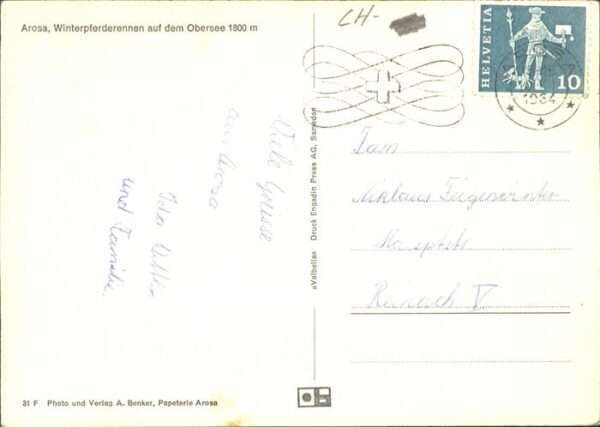 Arosa, Winterpferderennen auf dem Obersee 1800 m
CH-
HELVETIA
10
1964
Viele Grüsse
aus Arosa
und Familie
«Valbella» Druck Engadin Press AG, Samedan
Fam
Niklaus
Hauptstr
Reinach
31 F Photo und Verlag A. Benker, Papeterie Arosa